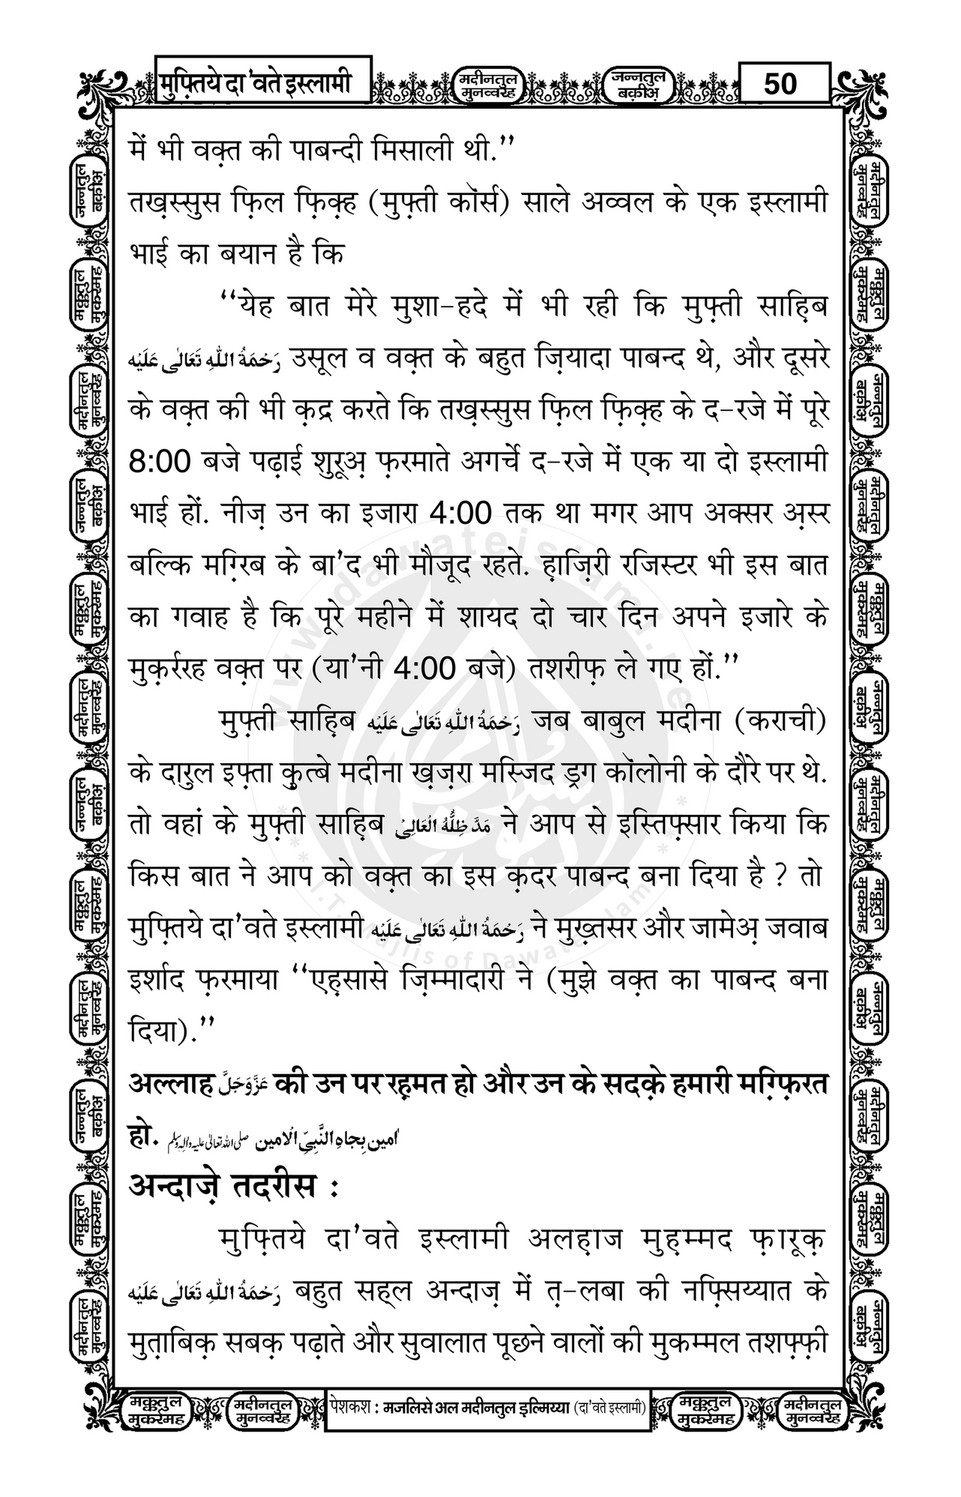 मुफ़्तिये दा'वते इस्लामी
मदीनतुल मुनव्वरह
जन्नतुल बक़ीअ़
50
में भी वक़्त की पाबन्दी मिसाली थी.''
तख़स्सुस फ़िल फ़िक़्ह (मुफ़्ती कॉर्स) साले अव्वल के एक इस्लामी
भाई का बयान है कि
''येह बात मेरे मुशा-हदे में भी रही कि मुफ़्ती साह़िब
رَحْمَةُ اللهِ تَعَالٰى عَلَيْه उसूल व वक़्त के बहुत ज़ियादा पाबन्द थे, और दूसरे
के वक़्त की भी क़द्र करते कि तख़स्सुस फ़िल फ़िक़्ह के द-रजे में पूरे
8:00 बजे पढ़ाई शुरूअ़ फ़रमाते अगर्चे द-रजे में एक या दो इस्लामी
भाई हों. नीज़ उन का इजारा 4:00 तक था मगर आप अक्सर अ़स्र
बल्कि मग़्रिब के बा'द भी मौजूद रहते. ह़ाज़िरी रजिस्टर भी इस बात
का गवाह है कि पूरे महीने में शायद दो चार दिन अपने इजारे के
मुक़र्ररह वक़्त पर (या'नी 4:00 बजे) तशरीफ़ ले गए हों.''
मुफ़्ती साह़िब رَحْمَةُ اللهِ تَعَالٰى عَلَيْه जब बाबुल मदीना (कराची)
के दारुल इफ़्ता कुत्बे मदीना ख़ज़रा मस्जिद ड्रग कॉलोनी के दौरे पर थे.
तो वहां के मुफ़्ती साह़िब مَدَّ ظِلُّهُ الْعَالِى ने आप से इस्तिफ़्सार किया कि
किस बात ने आप को वक़्त का इस क़दर पाबन्द बना दिया है ? तो
मुफ़्तिये दा'वते इस्लामी رَحْمَةُ اللهِ تَعَالٰى عَلَيْه ने मुख़्तसर और जामेअ़ जवाब
इर्शाद फ़रमाया ''एह़सासे ज़िम्मादारी ने (मुझे वक़्त का पाबन्द बना
दिया).''
अल्लाह عَزَّوَجَلَّ की उन पर रह़मत हो और उन के सदक़े हमारी मग़्फ़िरत
हो. اٰمين بِجاهِ النَّبِىِّ الْامين صلى الله تعالى عليه واٰله وسلم
अन्दाज़े तदरीस :
मुफ़्तिये दा'वते इस्लामी अलह़ाज मुह़म्मद फ़ारूक़
رَحْمَةُ اللهِ تَعَالٰى عَلَيْه बहुत सह्ल अन्दाज़ में त़-लबा की नफ़्सिय्यात के
मुत़ाबिक़ सबक़ पढ़ाते और सुवालात पूछने वालों की मुकम्मल तशफ़्फ़ी
मक्कतुल मुकर्रमह
मदीनतुल मुनव्वरह
पेशकश : मजलिसे अल मदीनतुल इल्मिय्या (दा'वते इस्लामी)
मक्कतुल मुकर्रमह
मदीनतुल मुनव्वरह